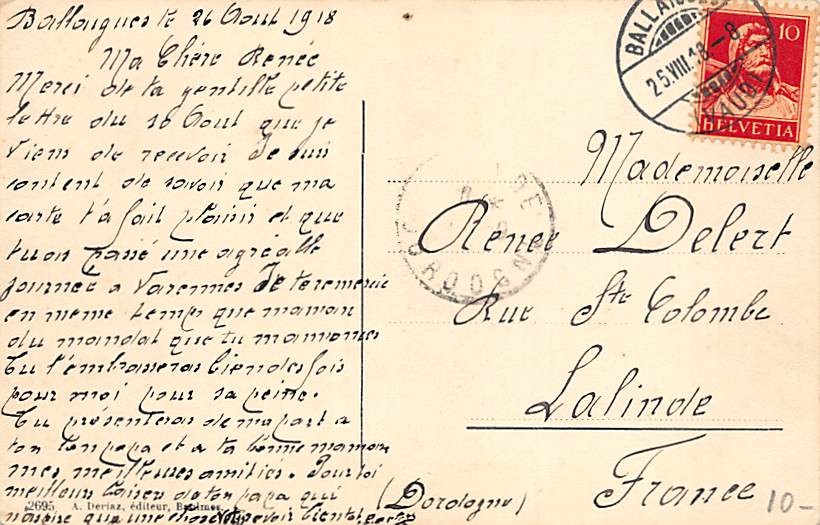 Ballaigues le 26 Aout 1918
Ma Chère Renée
Merci de ta gentille petite
lettre du 16 Aout que je
viens de recevoir Je suis
content de savoir que ma
carte t'a fait plaisir et que
tu as passé une agréable
journée a Varennes Je te remercie
en meme temps que maman
du mandat que tu m'annonces
Tu l'embrasseras bien des fois
pour moi pour sa peine.
Tu présenteras de ma part a
ton bon papa et a ta bonne maman
mes meilleures amitiés. Pour toi
meilleurs baisers de ton papa qui
n'aspire que une chose
2695 A. Deriaz, éditeur, Baulmes
BALLAIGUES
25.VIII.18.-8
(VAUD)
10
HELVETIA
DORDOGNE
Mademoiselle
Renée Delert
Rue Ste Colombe
Lalinde
(Dordogne)
France
10-